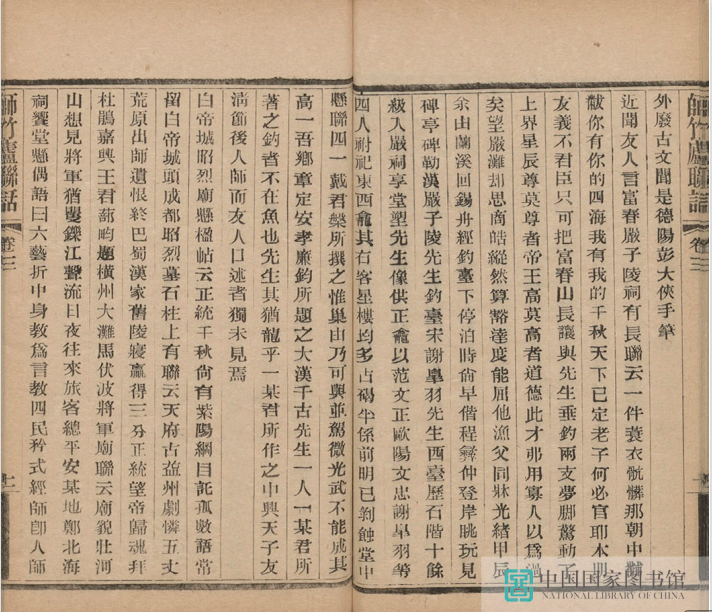 師竹廬聯話 卷三
外廢古文聞是德陽彭大俠手筆
近聞友人言富春嚴子陵祠有長聯云一件蓑衣骯髒那朝中黼
黻你有你的四海我有我的千秋天下已定老子何必官耶本朋
友義不君臣只可把富春山長讓與先生垂釣兩支夢脚驚動了
上界星辰尊莫尊者帝王高莫高者道德此才弗用寡人以爲過
矣望嚴灘却思商皓縱然算豁達度能屈他漁父同牀光緒甲辰
余由蘭溪回錫舟經釣臺下停泊時尙早偕程彝仲登岸眺玩見
碑亭碑勒漢嚴子陵先生釣臺宋謝臯羽先生西臺歷石階十餘
級入嚴祠享堂塑先生像供正龕以范文正歐陽文忠謝臯羽等
四人祔祀東西龕其右客星樓均多占碣半係前明已剝蝕堂中
懸聯四一戴君槃所撰之惟巢由乃可與並駕微光武不能成其
高一吾鄉章定安孝廉鈞所題之大漢千古先生一人一某君所
著之釣者不在魚也先生其猶龍乎一某君所作之中興天子友
清節後人師而友人口述者獨未見焉
白帝城昭烈廟懸楹帖云正統千秋尙有紫陽綱目託孤數語常
留白帝城頭成都昭烈墓石柱上有聯云天府古益州劇憐五丈
荒原出師遺恨終巴蜀漢家舊陵寢贏得三分正統望帝歸魂拜
杜鵑嘉興王君蔀畇題橫州大灘馬伏波將軍廟聯云廟貌壯河
山想見將軍猶矍鑠江聲流日夜往來旅客總平安某地鄭北海
祠饗堂懸偶語曰六藝折中身教爲言教四民矜式經師卽人師
師竹廬聯話 卷三
中国国家图书馆
NATIONAL LIBRARY OF CHINA